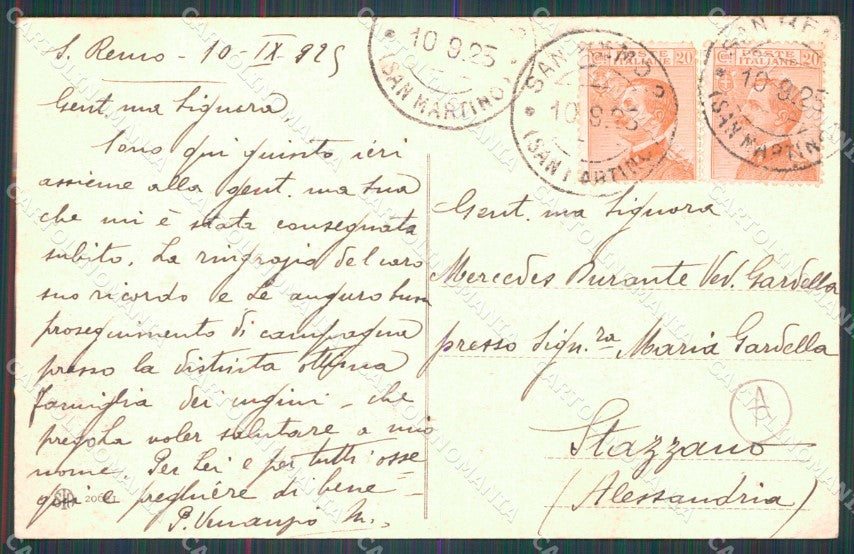 S. Remo - 10 - IX 925
Gent.ma Signora
Sono qui giunto ieri
assieme alla gent.ma sua
che mi è stata consegnata
subito. La ringrazio del caro
suo ricordo e Le auguro buon
proseguimento di campagna
presso la distinta ottima
famiglia dei cugini - che
prego La voler salutare a mio
nome. Per Lei e per tutti osse
qui e preghiere di bene -
P.
20
10 9.25
(SAN MARTINO)
SAN REMO
10 9.25
(SAN MARTINO)
POSTE ITALIANE 20
SAN REMO
10 9.25
(SAN MARTINO)
POSTE ITALIANE 20
Gent.ma Signora
Mercedes Durante Ved. Gardella
presso Sign.ra Maria Gardella
Stazzano
(Alessandria)
A
CARTOLINOMANIA